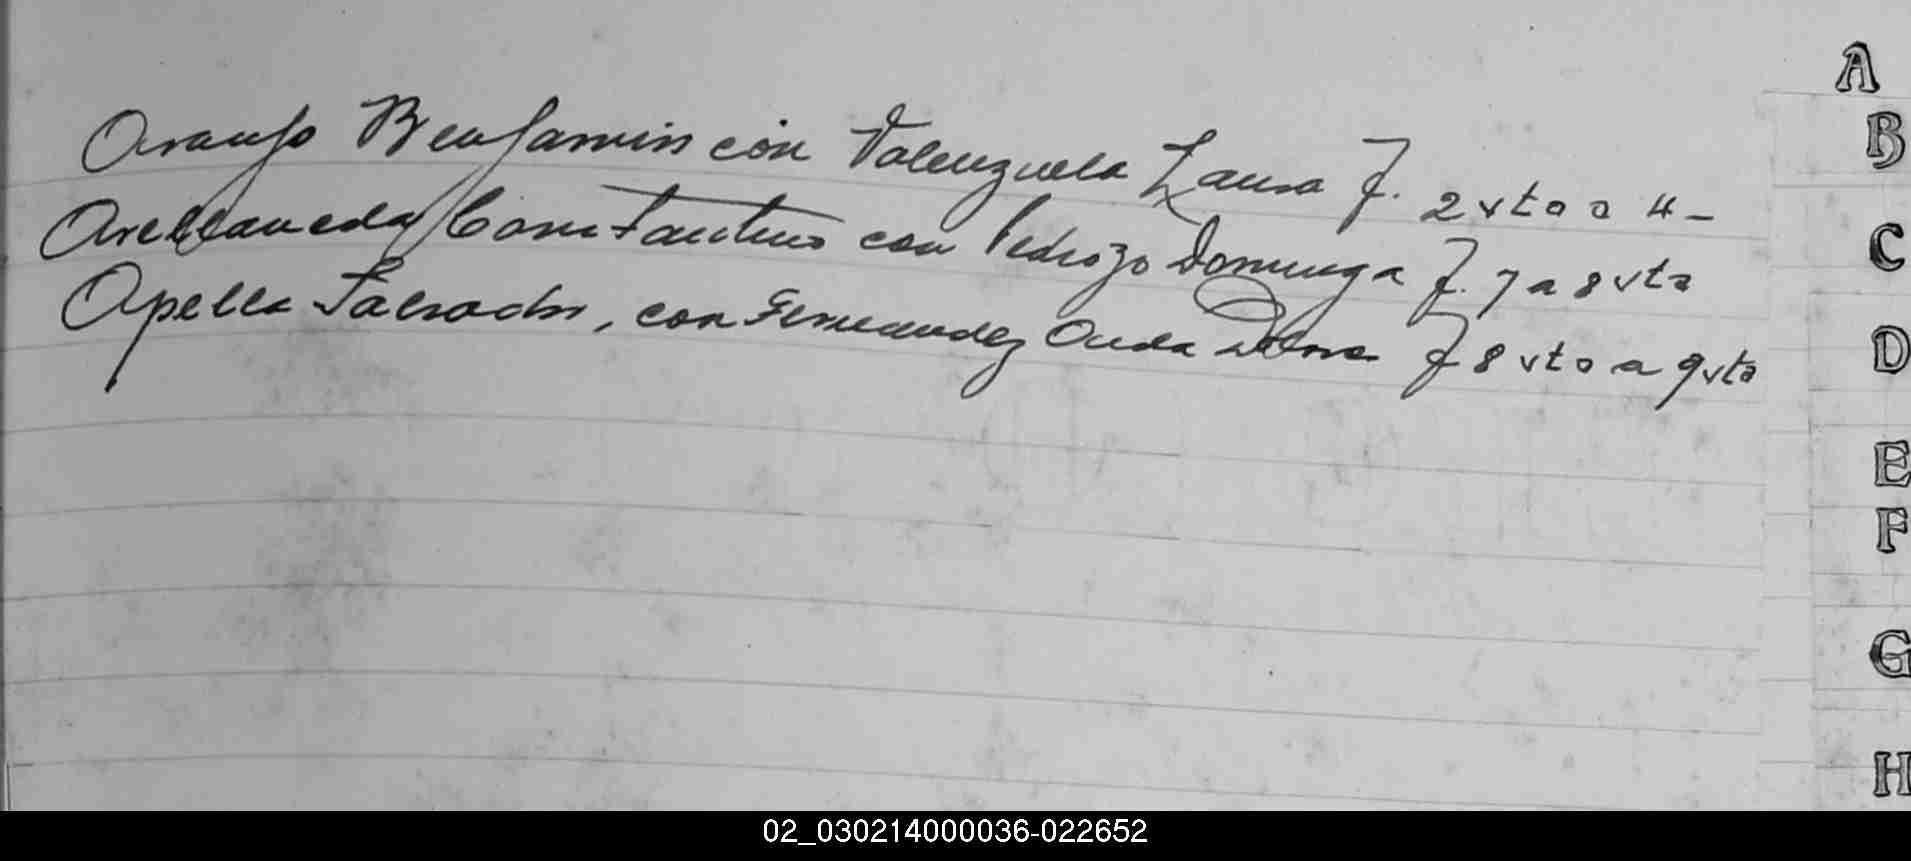 Araujo Benjamin con Valenzuela Laura F. 2 vto a 4 -
Arellaneda Constantino con Pedrozo Dominga F. 7 a 8 vta
Apella Salvador, con Fernandez F 8 vto a 9 vto
A
B
C
D
E
F
G
H
02_030214000036-022652